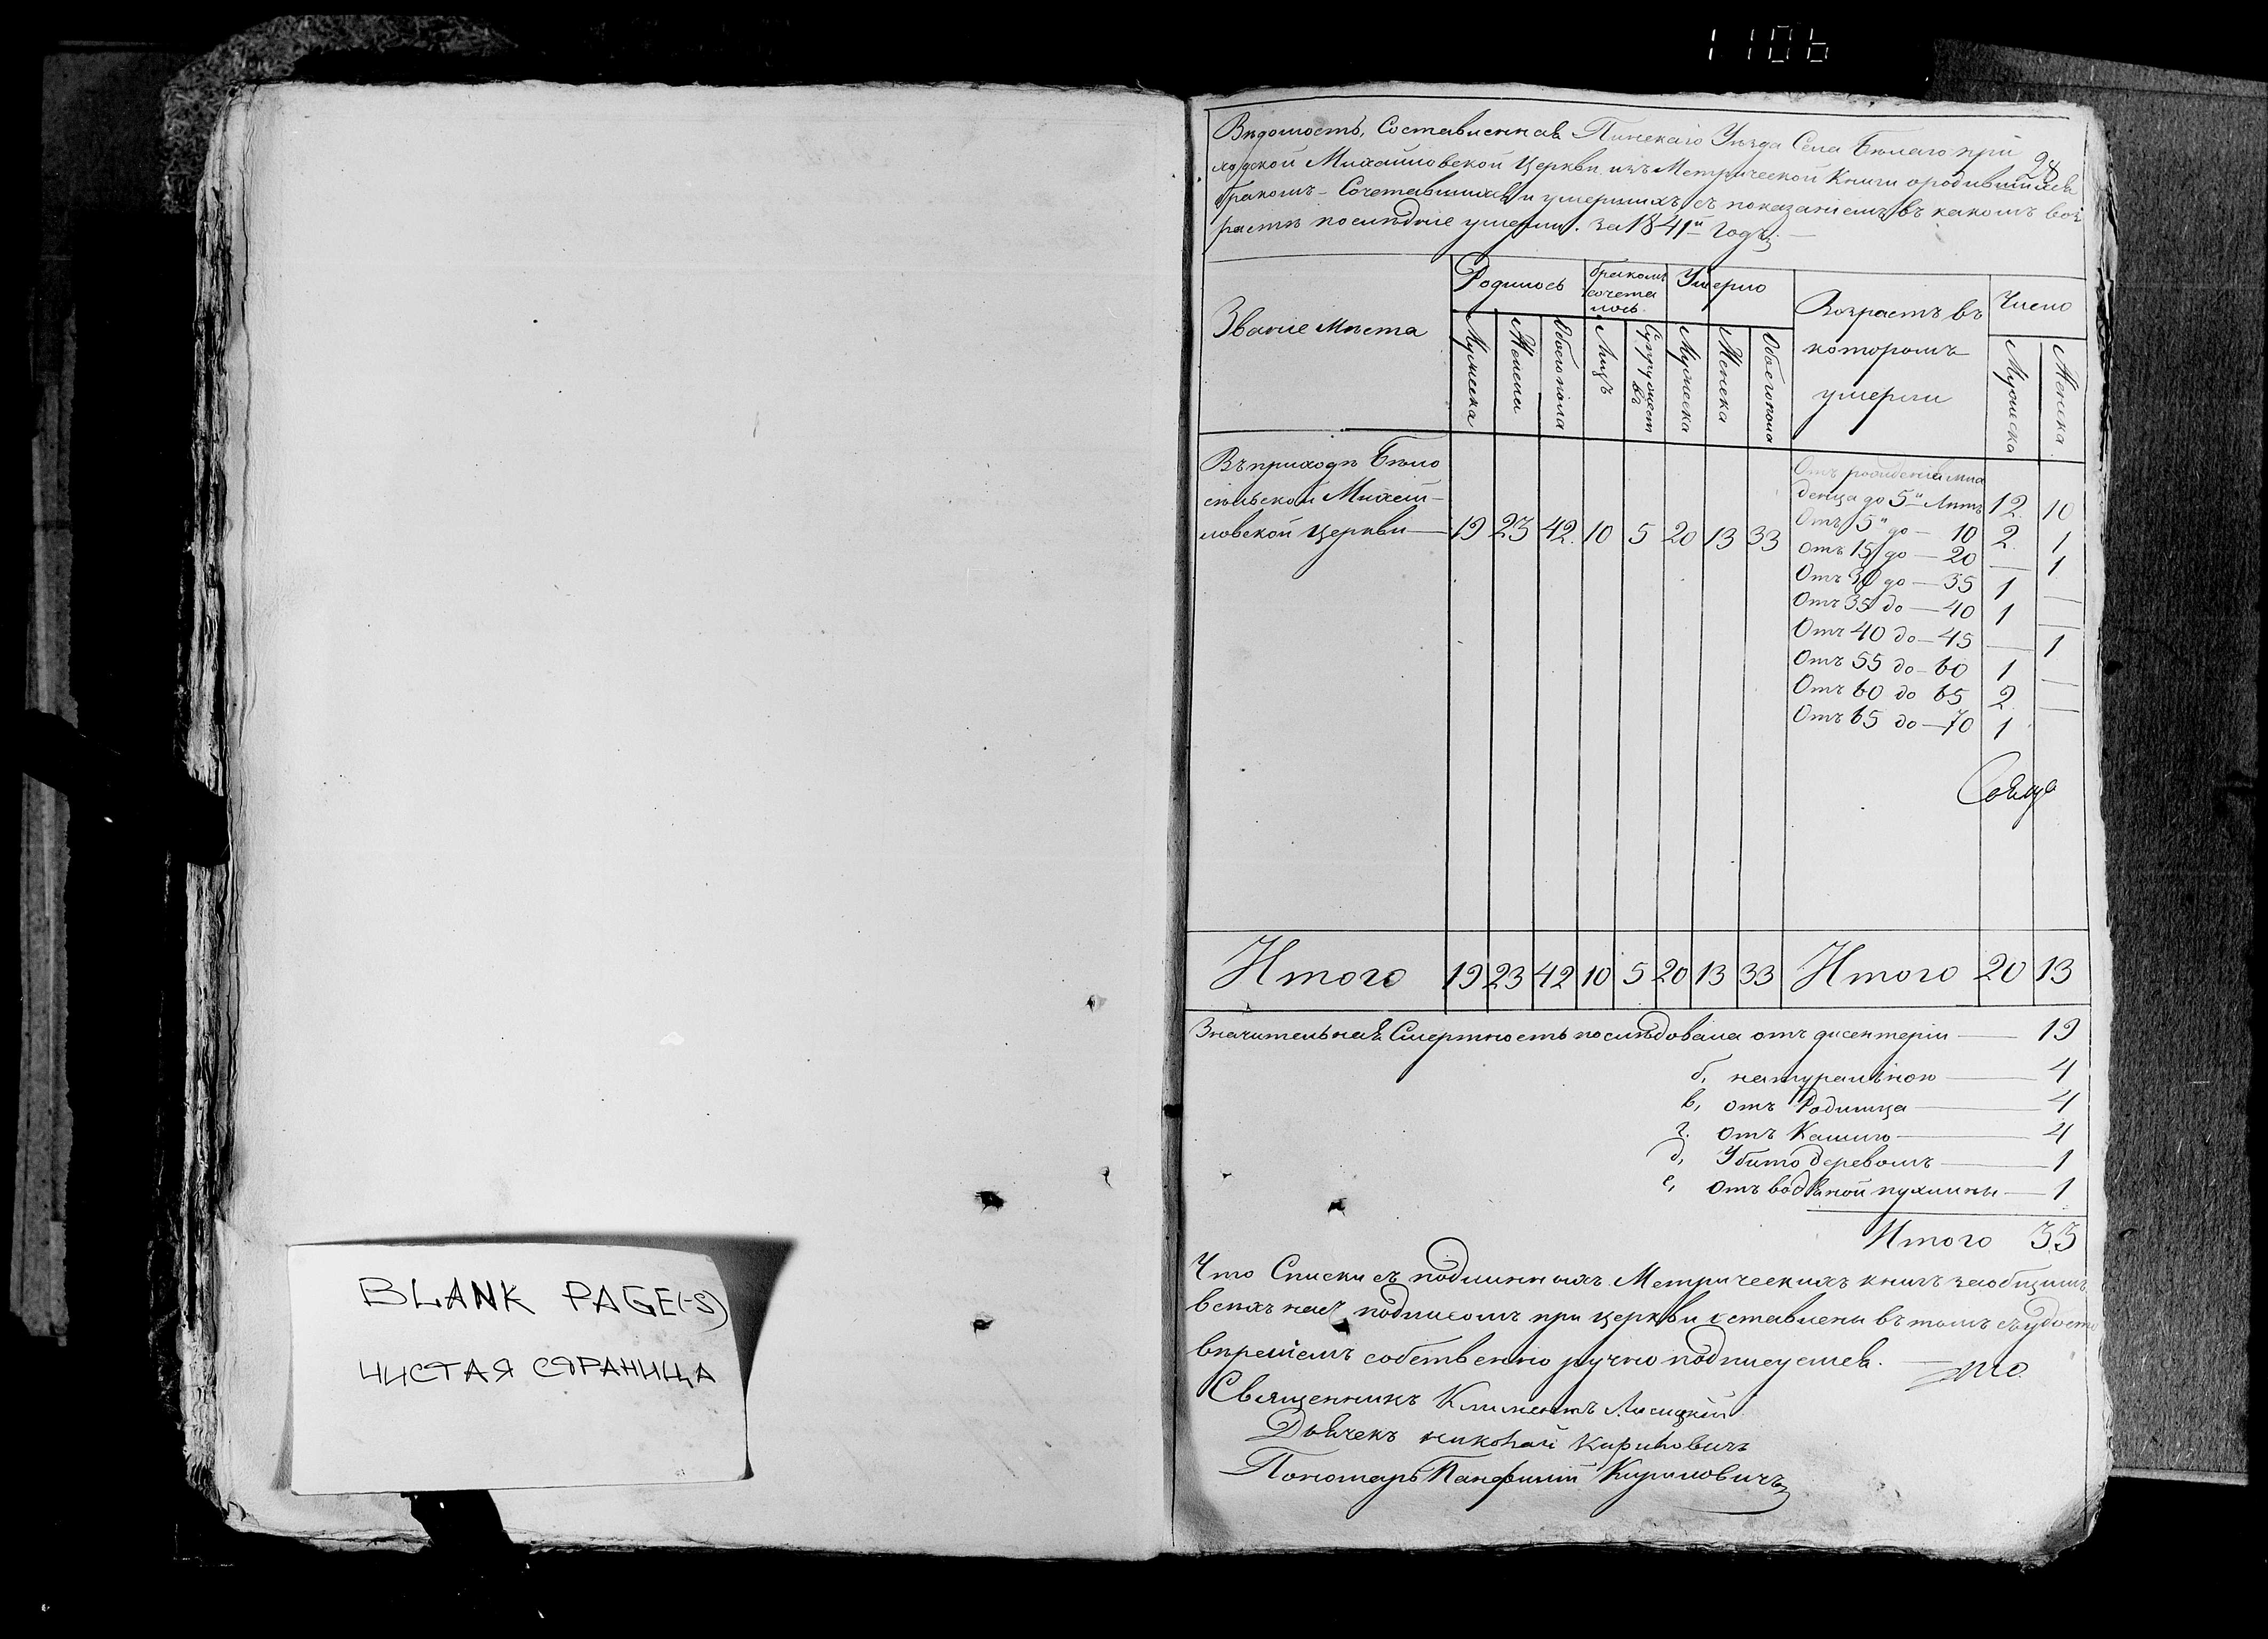 1106
BLANK PAGE(-S)
ЧИСТАЯ СТРАНИЦА
28
Вѣдомость, Составленная Пинскаго Уѣзда Села Бѣлаго при
ходской Михайловской Церкви изъ Метрической Книги о родившихся
бракомъ – Сочетавшихся и умершихъ, съ показаніемъ въ какомъ воз
растѣ послѣдніе умерли. за 1841й Годъ
Званіе мѣста
Родилось
бракомъ сочета лось
Умерло
Возрастъ въ которомъ умерли
Число
Мужеска
Женска
Обоего пола
Лицъ
Супружест въ
Мужеска
Женска
Обоего пола
Мужеска
Женска
Въ приходѣ Бѣло
сельской Михай–
ловской Церкви — 19 23 42. 10 5 20 13 33
Отъ рожденія мла
денца до 5и Лѣтъ 12. 10
Отъ 5и до — 10 2. 1
отъ 15 до — 20 — 1
Отъ 30 до — 35 1 —
Отъ 35 до — 40 1 —
Отъ 40 до — 45 — 1
Отъ 55 до — 60 1 —
Отъ 60 до 65 2 —
Отъ 65 до — 70 1
Итого 19 23 42 10 5 20 13 33 Итого 20 13
Значительная Смертность послѣдовала отъ дисентеріи — 19
б, натуральною — 4
в, отъ Родимца — 4
г. отъ Кашлю — 4
д, Убито деревомъ — 1
е, отъ водяной пухлины — 1
Итого 33
Что Списки съ подлинныхъ Метрическихъ книгъ за общимъ
всѣхъ насъ подписомъ при церкви оставлены въ томъ съ удосто
вѣреніемъ собственно ручно подписуемся.
Священникъ Климентъ Лисицкій
Дьячекъ николай Кириловичъ
Пономарь Панфилій Кириловичъ